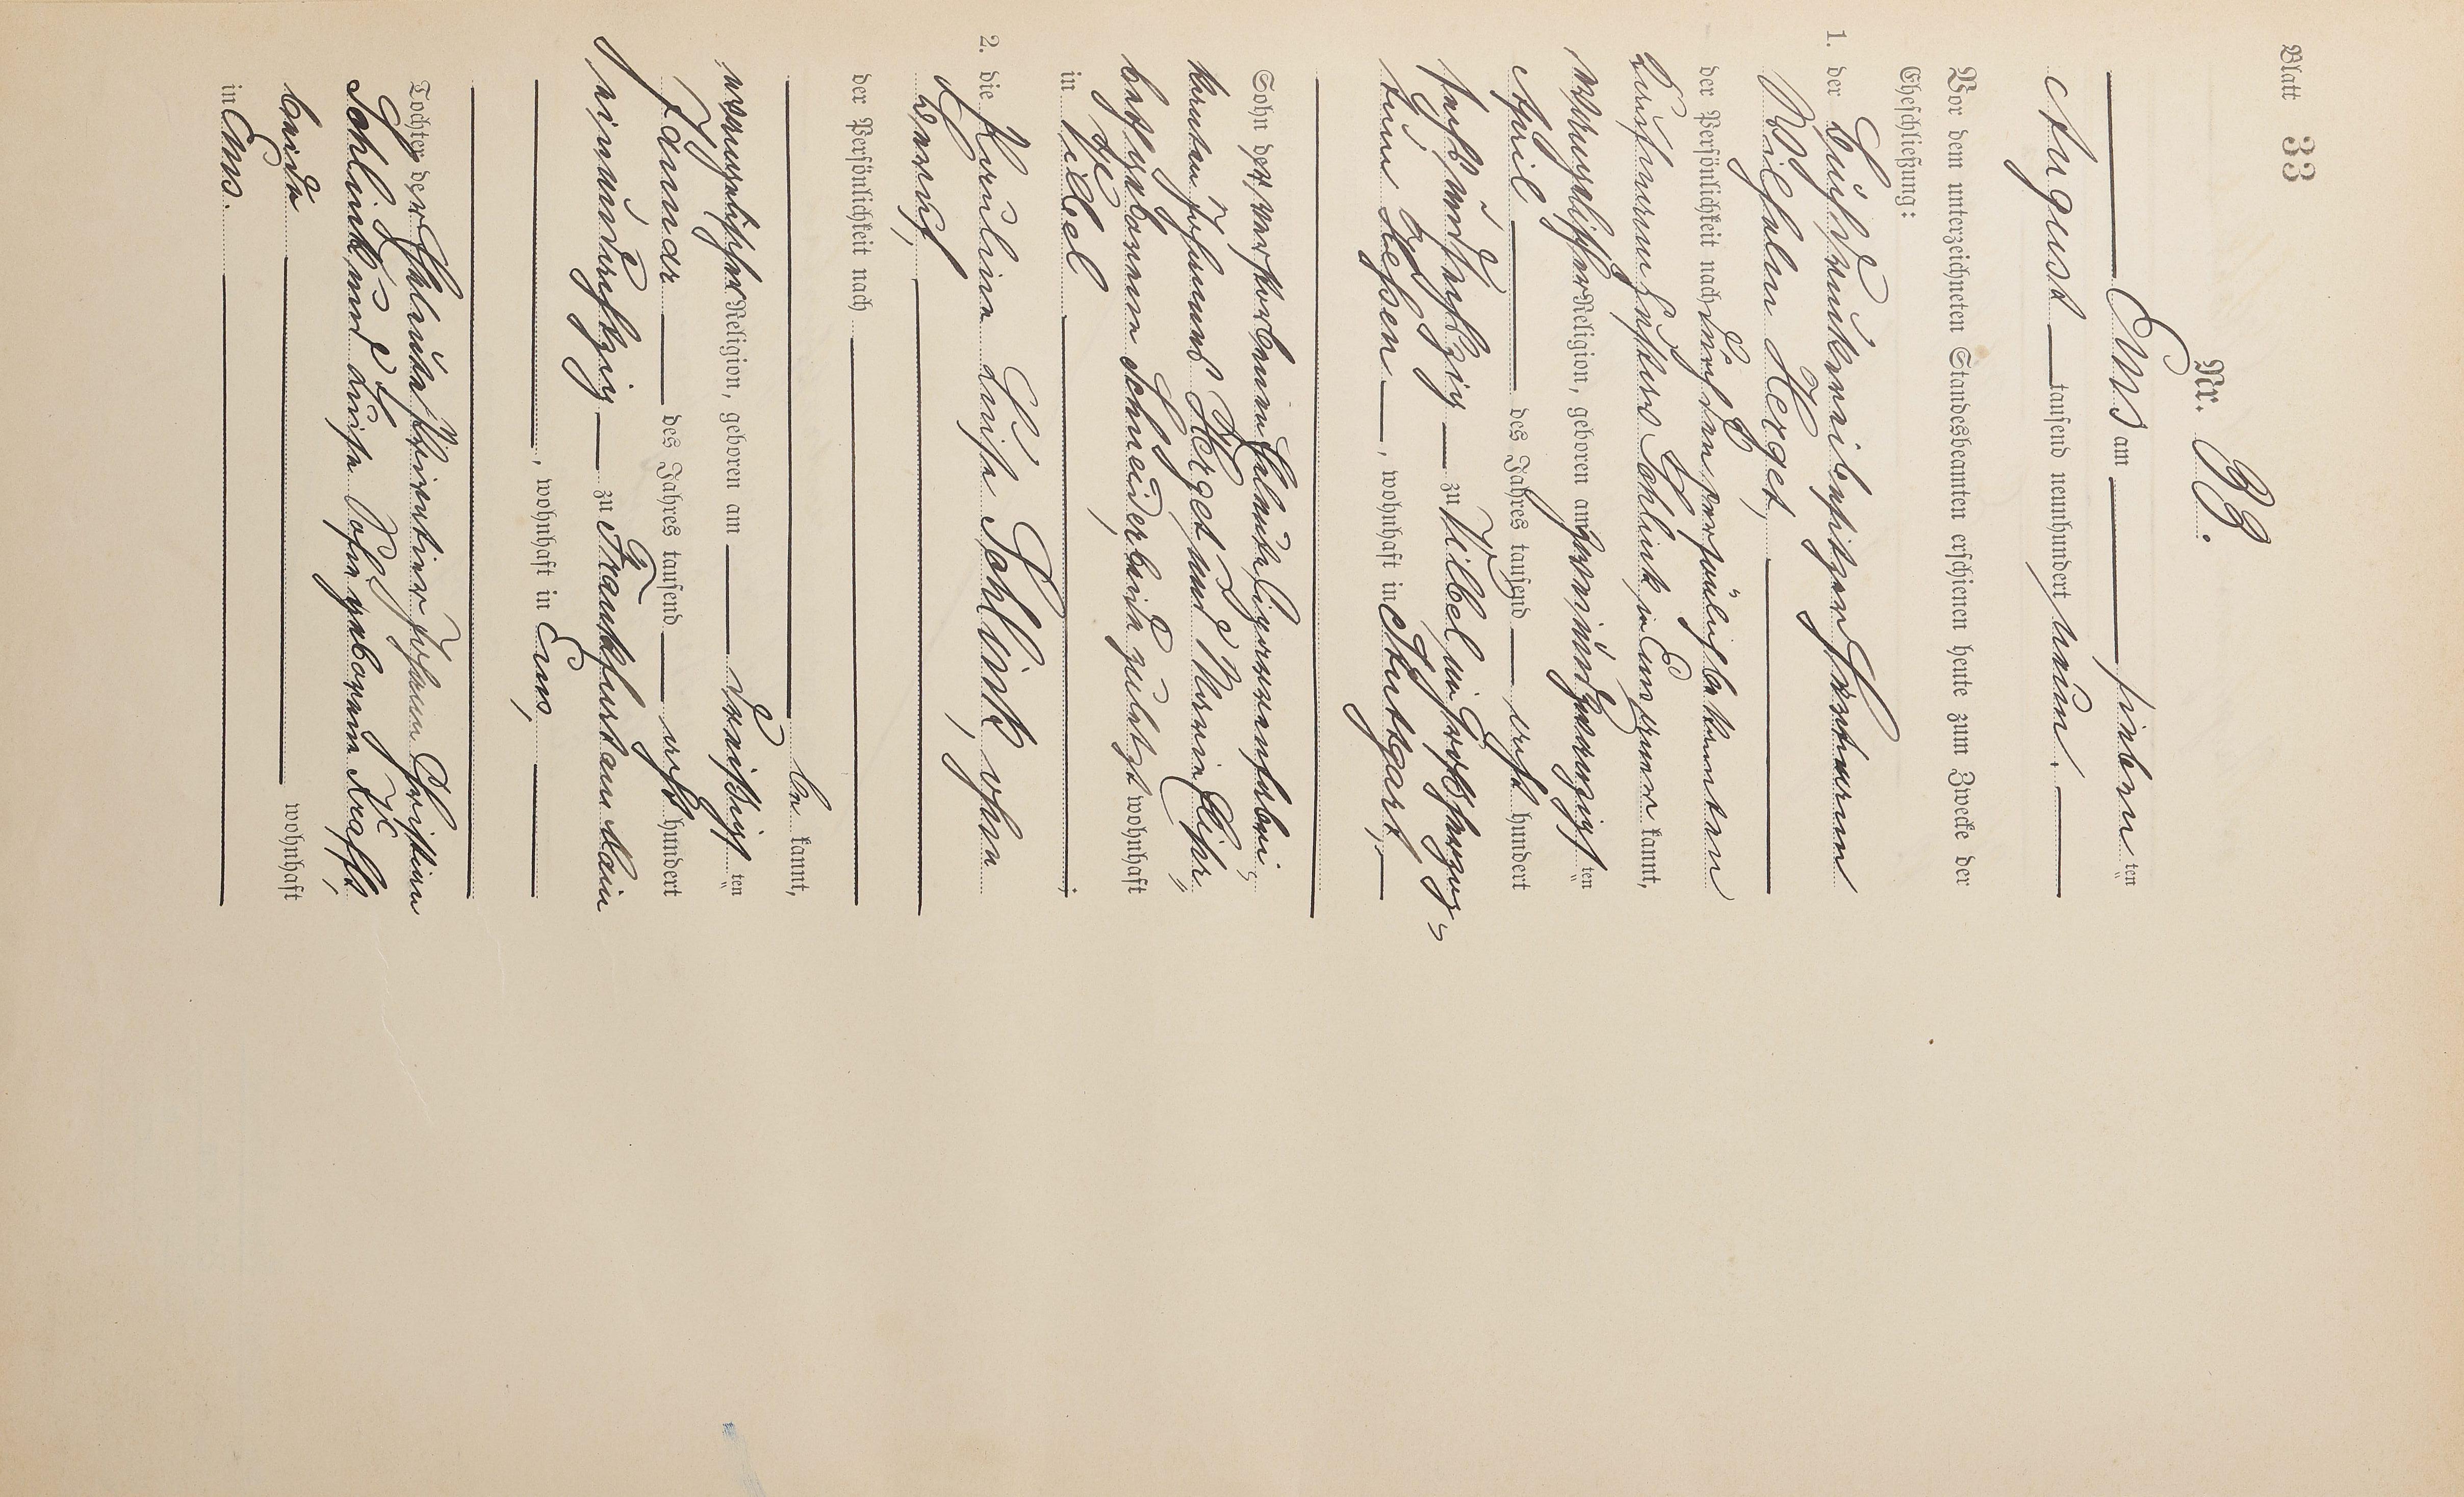 Blatt 33
Nr. 33.
Ems am siebenten
August tausend neunhundert neun.
Vor dem unterzeichneten Standesbeamten erschienen heute zum Zwecke der
Eheschließung:
1. der Buchdruckereibesitzer Hermann
Wilhelm Herget,
der Persönlichkeit nach durch den persönlich bekannten
Kaufmann Gustav Schlink in Ems aner kannt,
evangelischer Religion, geboren am zweiundzwanzigsten
April des Jahres tausend acht hundert
zu Vilbel im Großherzog=
tum Hessen, wohnhaft in Stuttgart,
Sohn der verstorbenen Eheleute Cigarrenfabri=
kanten Johannes Herget und Maria Elisa=
beth geborenen Schneider, beide zuletzt wohnhaft
in Vilbel ;
2. die Karoline Luise Schlink, ohne
Beruf,
der Persönlichkeit nach
be kannt,
evangelischer Religion, geboren am dreißigsten
Januar des Jahres tausend acht hundert
zu Frankfurt am Main
, wohnhaft in Ems,
Tochter der Eheleute Privatier Johann Christian
Schlink und Luise Sofie geborenen Krafft,
beide wohnhaft
in Ems.